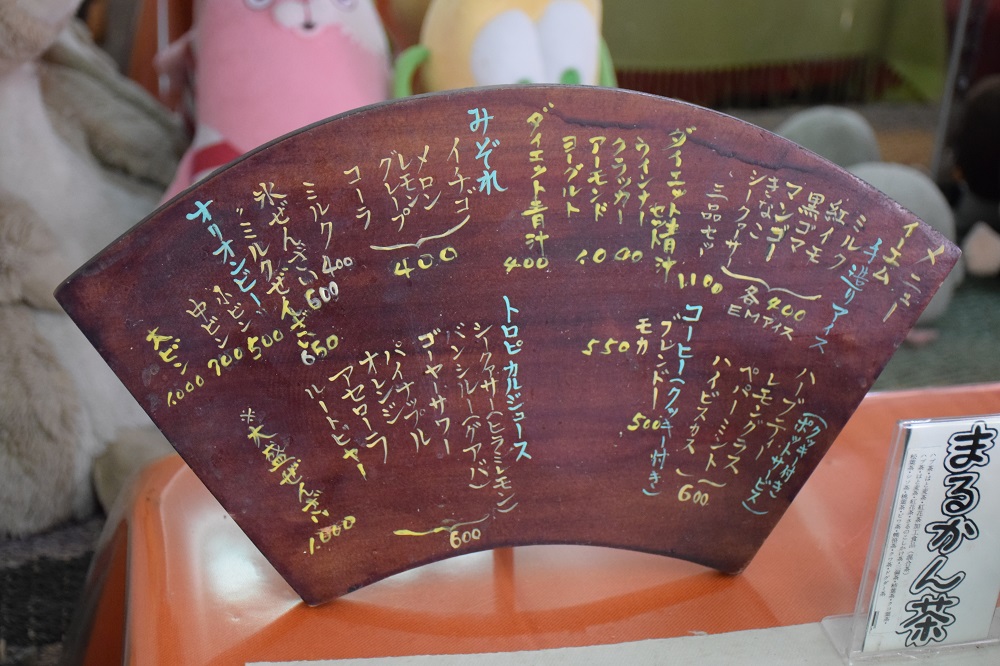 メニュー
イーエム
手造りアイス
ミルク
紅イモ
黒ゴマ
マンゴー
きなこ
シークァサー
各400
EMアイス
三品セット
1,100
ダイエット青汁
ウインナー
クラッカー
アーモンド
ヨーグルト
1,000
ダイエット青汁
400
みぞれ
イチゴ
メロン
レモン
グレープ
コーラ
400
ミルク 400
氷ぜんざい 600
〃ミルクぜんざい 650
オリオンビール
小ビン 500
中ビン 700
大ビン 1,000
(クッキー付き
ポットサービス)
ハーブティー
レモングラス
ペパーミント
ハイビスカス
600
コーヒー(クッキー付き)
ブレンド 500
モカ 550
トロピカルジュース
シイクァサー(ヒラミレモン)
バンシルー(グアバ)
ゴーヤーサワー
パイナップル
オレンジ
アセローラ
ルートビヤー
600
※大盛ぜんざい 1,000
まるかん茶